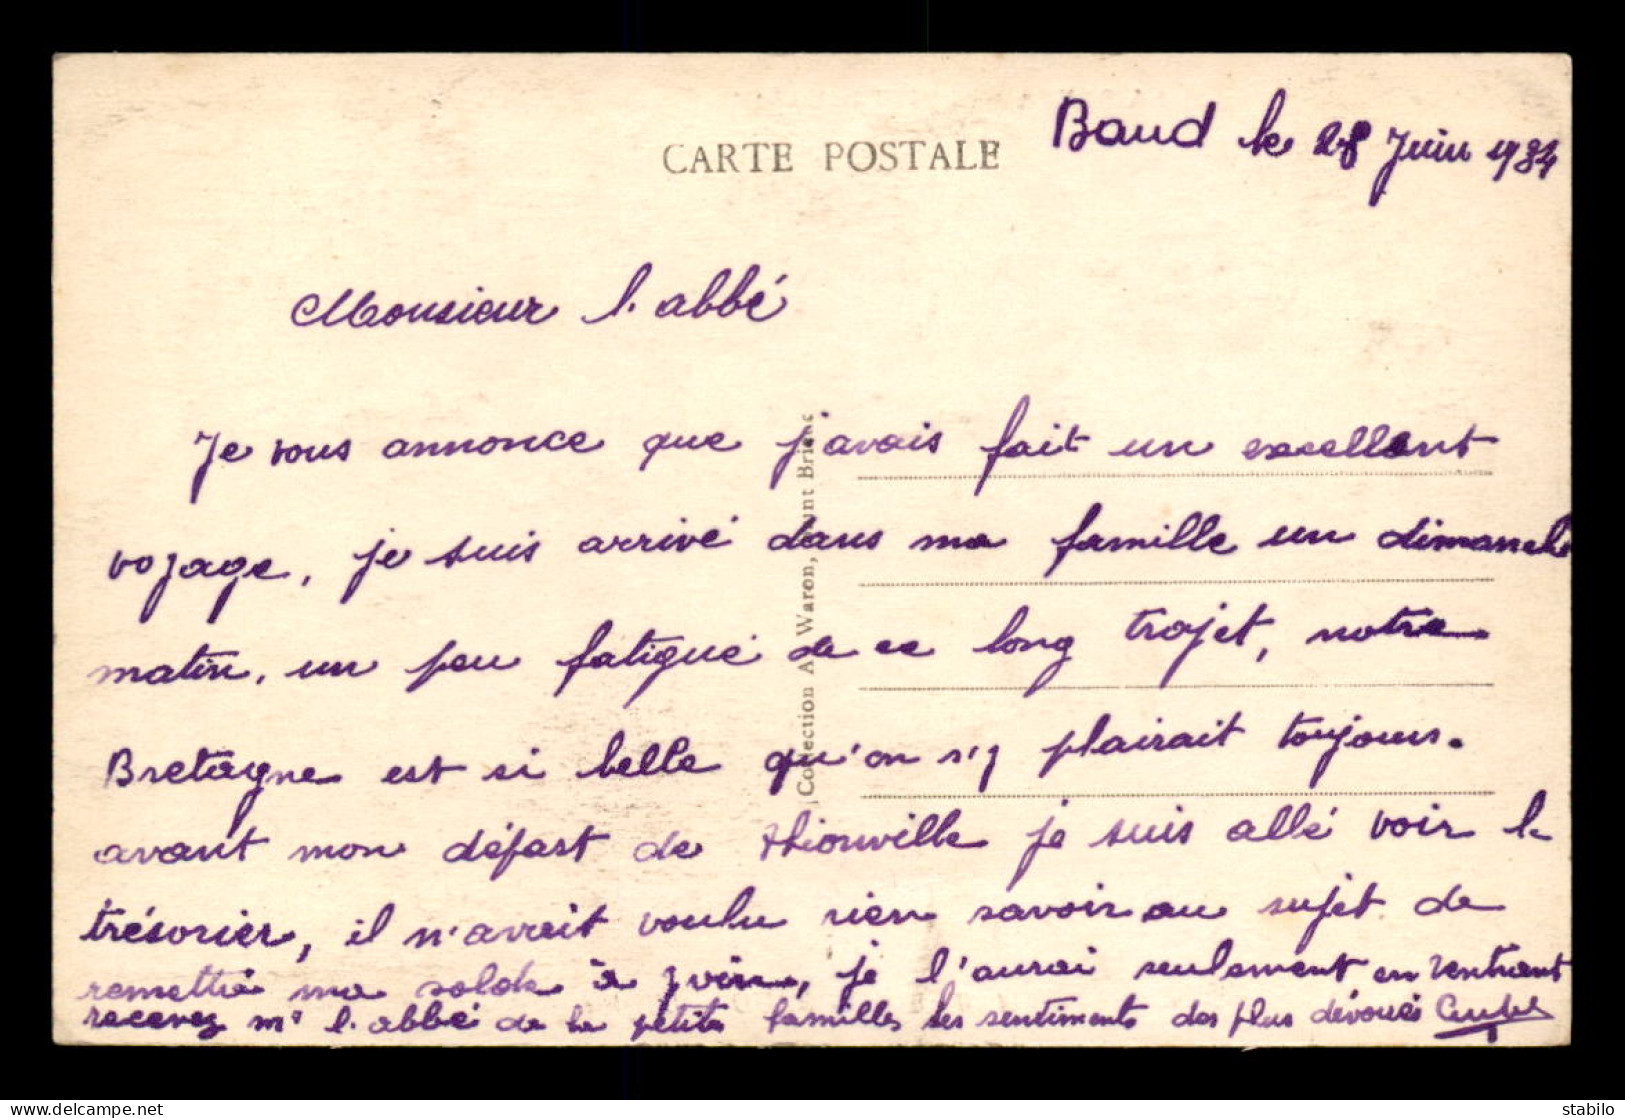 CARTE POSTALE
Baud le 28 Juin 1934
Monsieur l'abbé
Je vous annonce que j'avais fait un excellent
voyage, je suis arrivé dans ma famille un dimanche
matin, un peu fatigué de ce long trajet, notre
Bretagne est si belle qu'on s'y plairait toujours.
avant mon départ de thionville je suis allé voir le
trésorier, il n'avait voulu rien savoir au sujet de
remettre ma solde à je l'aurai seulement en rentrant
recevez mr l'abbé de la petite famille les sentiments des plus dévoués
Collection A. Waron, Saint Brieuc
delcampe.net stabilo